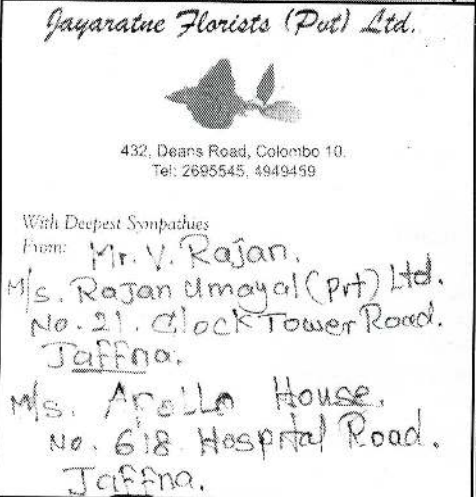 Jayaratne Florists (Pvt) Ltd.
432, Deans Road, Colombo 10.
Tel: 2695545, 4949459
With Deepest Sympathies
From: Mr. V. Rajan.
M/s. Rajan Umayal (Prt) Ltd.
No. 21. Clock Tower Road.
Jaffna.
M/s. Apollo House.
No. 618 Hospital Road.
Jaffna.